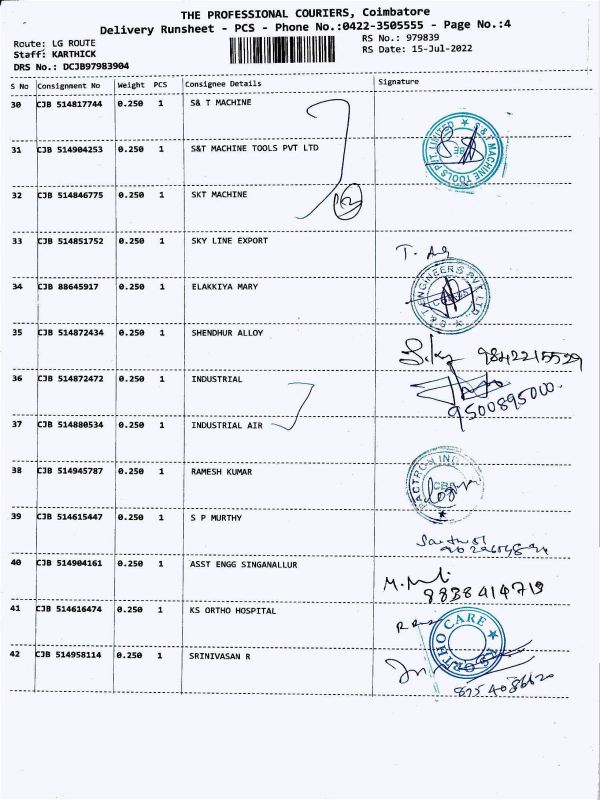 THE PROFESSIONAL COURIERS, Coimbatore
Delivery Runsheet - PCS - Phone No.:0422-3505555 - Page No.:4
Route: LG ROUTE
Staff: KARTHICK
DRS No.: DCJB97983904
RS No.: 979839
RS Date: 15-Jul-2022
S No Consignment No Weight PCS Consignee Details Signature
30 CJB 514817744 0.250 1 S& T MACHINE
31 CJB 514904253 0.250 1 S&T MACHINE TOOLS PVT LTD
S&T MACHINE TOOLS PVT LIMITED
32 CJB 514846775 0.250 1 SKT MACHINE
33 CJB 514851752 0.250 1 SKY LINE EXPORT
34 CJB 88645917 0.250 1 ELAKKIYA MARY
S&T ENGINEERS PVT LTD
35 CJB 514872434 0.250 1 SHENDHUR ALLOY
9842215529
36 CJB 514872472 0.250 1 INDUSTRIAL
9500895000
37 CJB 514880534 0.250 1 INDUSTRIAL AIR
38 CJB 514945787 0.250 1 RAMESH KUMAR
39 CJB 514615447 0.250 1 S P MURTHY
40 CJB 514904161 0.250 1 ASST ENGG SINGANALLUR
9838414719
41 CJB 514616474 0.250 1 KS ORTHO HOSPITAL
KS ORTHO CARE
42 CJB 514958114 0.250 1 SRINIVASAN R
8754086620